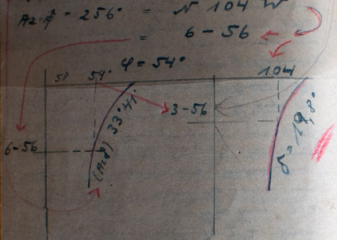 Az = 256° = N 104 W
= 6-56
φ = 54°
54° 104
3-56
6-56
(A±δ) 33°41'
δ = 19,8°